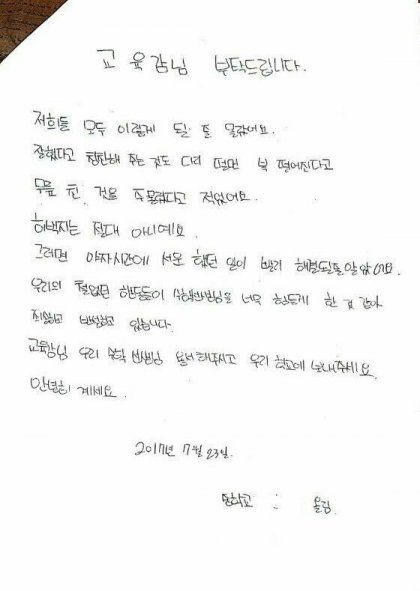 교육감님 부탁드립니다.
저희들 모두 이렇게 될 줄 몰랐어요.
잘했다고 칭찬해 주는 것도 다리 떨면 복 떨어진다고
무릎 친 것을 주물렀다고 적었어요.
허벅지는 절대 아니예요.
그러면 야자시간에 서운 했던 일이 빨리 해결될줄 알았어요.
우리의 철없던 행동들이 수학선생님을 너무 힘들게 한 것 같아
죄송하고 반성하고 있습니다.
교육감님 우리 수학 선생님 용서해주시고 우리 학교에 보내주세요.
안녕히 계세요.
2017년 7월 23일.
중학교 : 올림